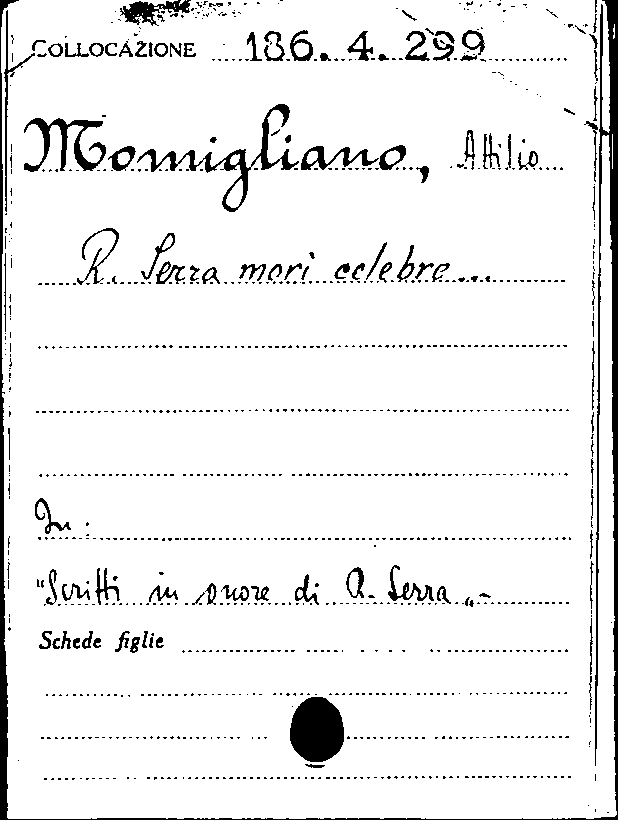 COLLOCAZIONE 186. 4. 299
Momigliano, Attilio
R. Serra morì celebre...
In:
"Scritti in onore di R. Serra„-
Schede figlie